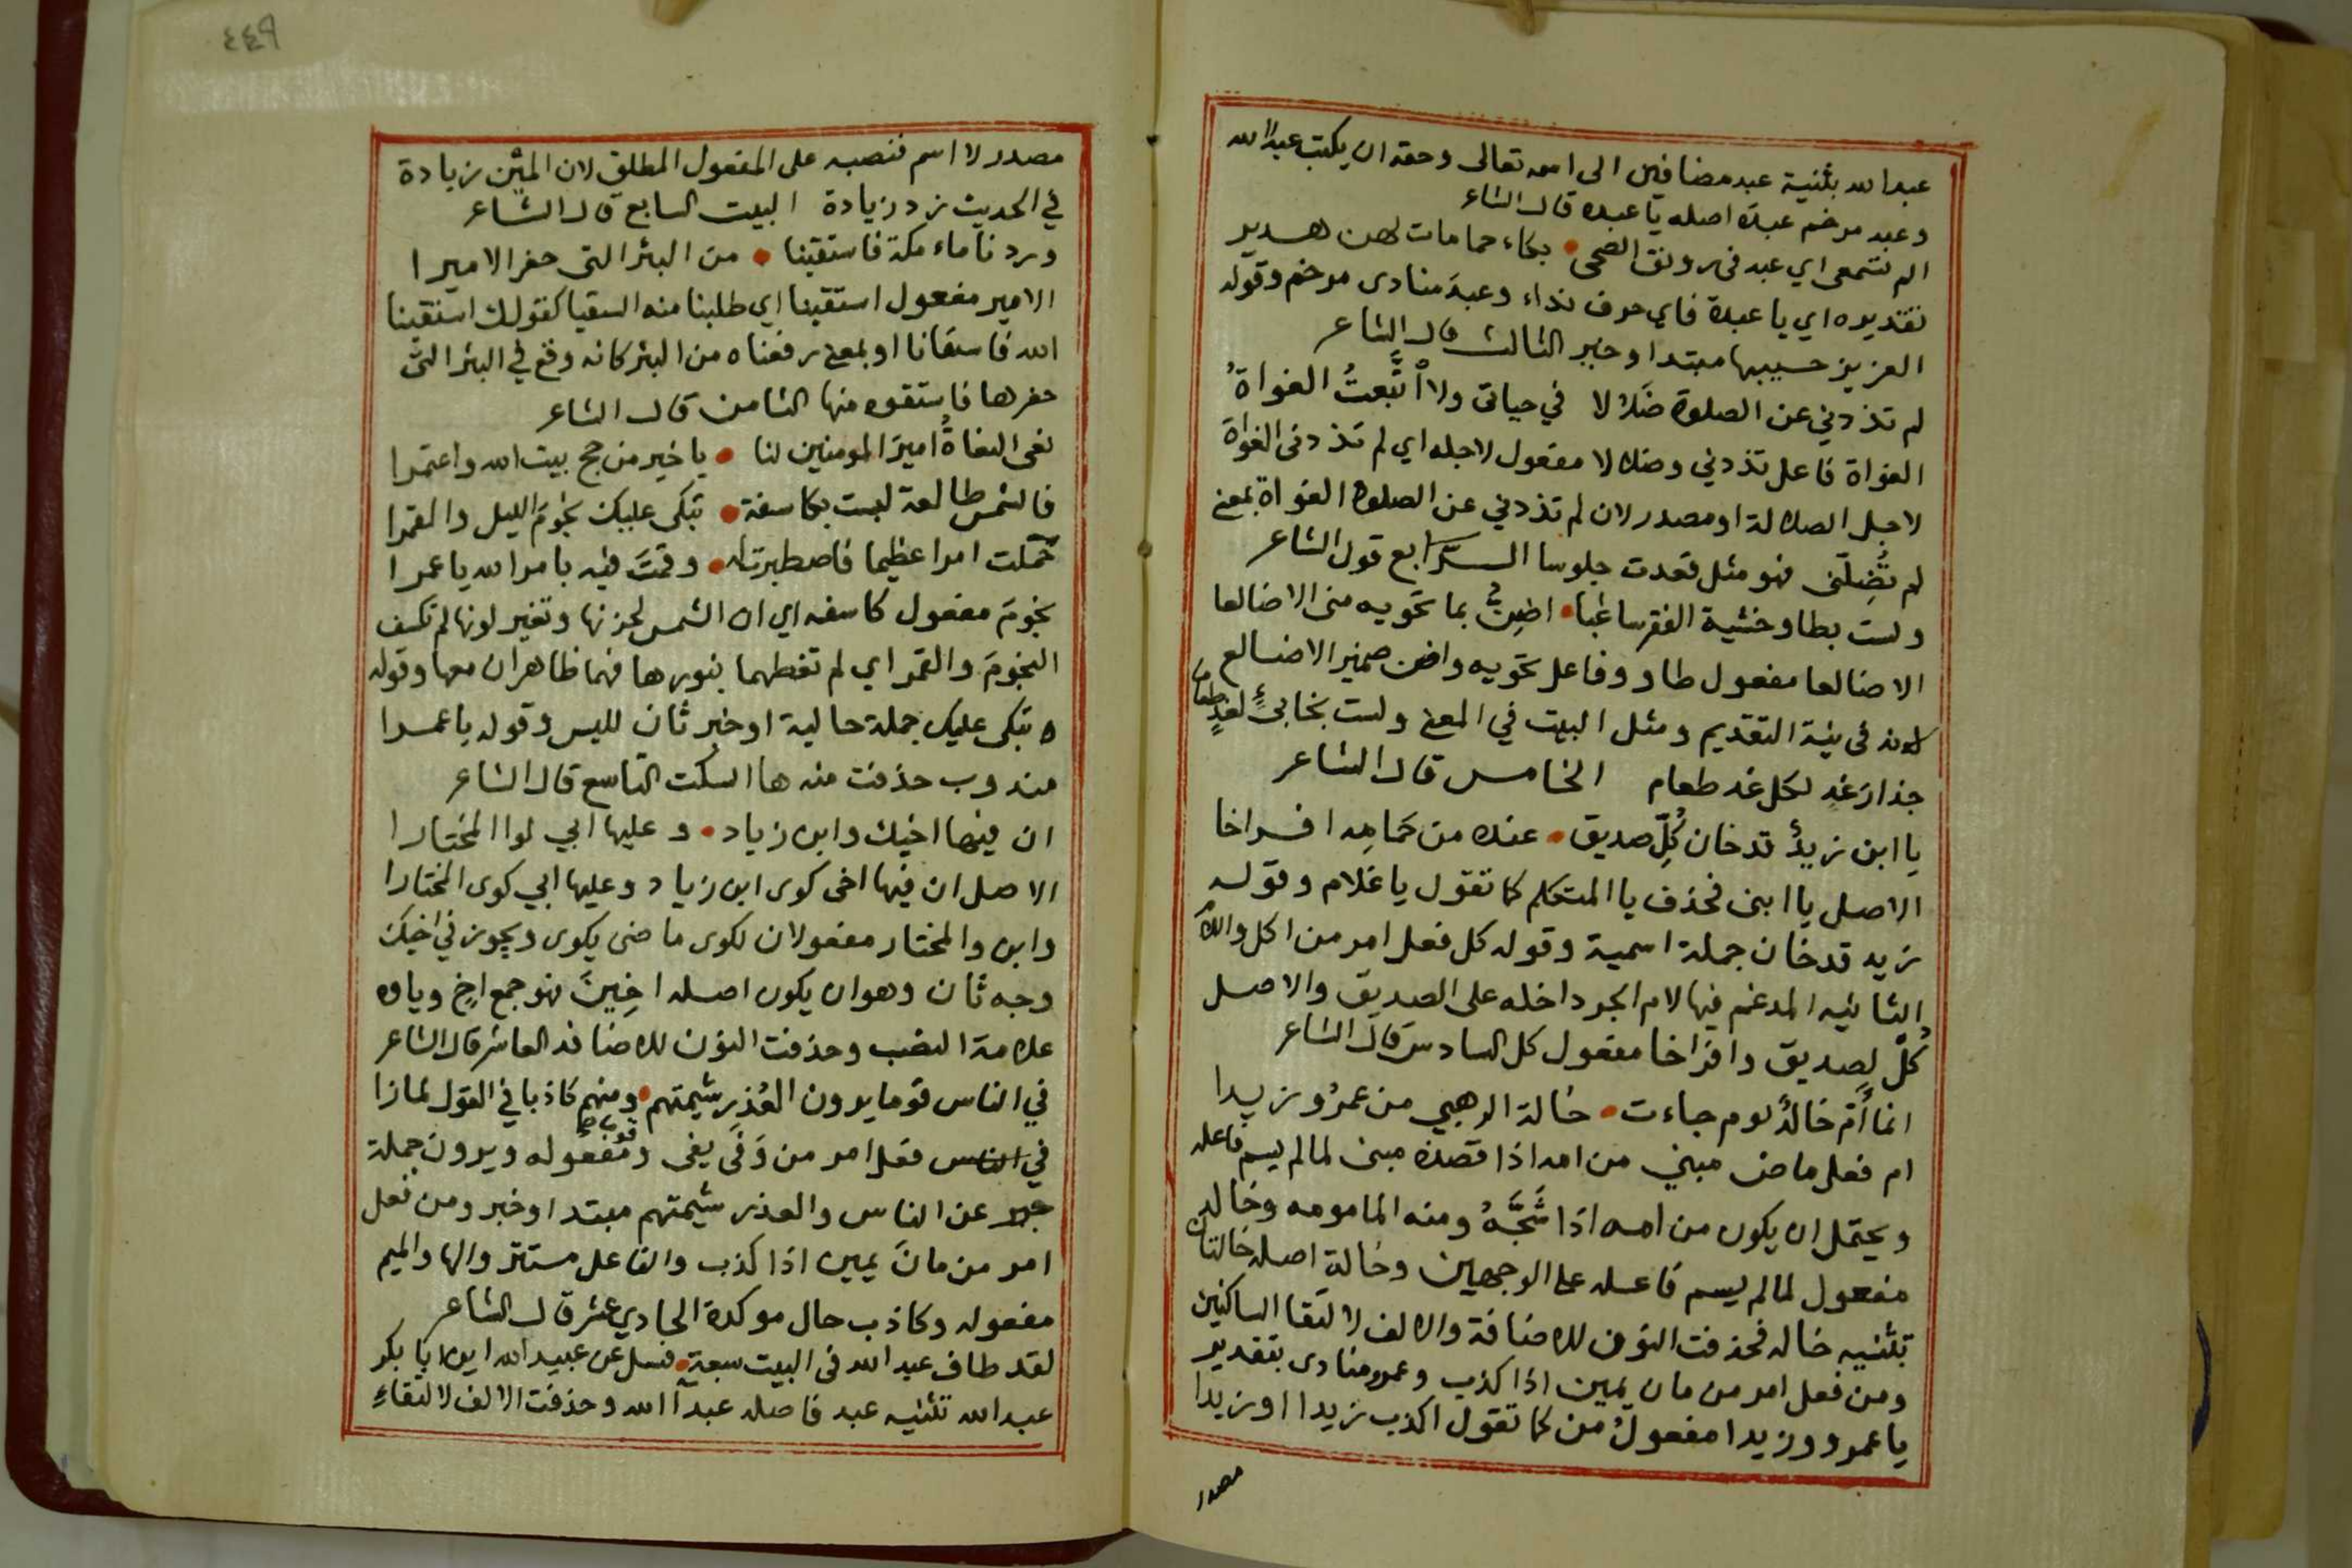 عبدا لله بثنية عبد مضافين الى اسمه تعالى وحقه ان يكتب عبدا الله
وعبد مرخم عبدة اصله يا عبدة قال الشاعر
الم تسمعي اي عبد في رونق الضحى • بكاء حمامات لهن هدير
تقديره اي يا عبدة فاي حرف نداء وعبدَ منادى مرخم وقوله
العزيز حسيبها مبتدا وخبر الثالث قال الشاعر
لم تذدني عن الصلوة ضلالا في حياتي ولا اتَّبعتُ الغواةُ
الغواة فاعل تذدني وضلالا مفعول لاجله اي لم تذدني الغواة
لاجل الضلالة او مصدر لان لم تذدني عن الصلوة الغواة بمعنى
لم تُضِلّني فهو مثل قعدت جلوسا الرابع قول الشاعر
ولست بطاو خشية الفقر ساغبا • اضِنُّ بما تحويه مني الاضالعا
الاضالعا مفعول طاو وفاعل تحويه واضن ضمير الاضالع
لانه في نية التقديم ومثل البيت في المعنى ولست بخابئٍ لغدٍ طعاما
حذارَ غدٍ لكل غد طعام الخامس قال الشاعر
يا ابن زيدٌ قد خان كُلِّ صديق • عنده من حَمَامِه افراخا
الاصل يا ابني فحذف يا المتكلم كما تقول يا غلام وقوله
زيد قد خان جملة اسمية وقوله كل فعل امر من اكل واللام
الثانيه المدغم فيها لام الجر داخله على الصديق والاصل
كُلْ لِصديق وافراخا مفعول كل السادس قال الشاعر
انما أُمَّ خالدٌ يوم جاءت • خالة الوهبي من عمرُو زيدا
ام فعل ماض مبني من امه اذا قصده مبنى لما لم يسم فاعله
ويحتمل ان يكون من امه اذا شَجَّهُ ومنه المامومه وخالد
مفعول لما لم يسم فاعله على الوجهين وخالة اصله خالتان
تثنيه خاله فحذفت النون للاضافة والالف لالتقا الساكنين
ومن فعل امر من مان يمين اذا كذب وعمرو منادى بتقدير
يا عمرو وزيدا مفعولُ من كما تقول اكذب زيدا او زيدا
مصدر
٤٤٩
مصدر لا اسم فنصبه على المفعول المطلق لان المَيْن زيادة
في الحديث زد زيادة البيت السابع قال الشاعر
وردنا ماء مكة فاستقينا • من البئر التي حفر الاميرا
الامير مفعول استقينا اي طلبنا منه السقيا كقولك استقينا
الله فاسقانا او بمعنى رفعناه من البئر كانه وقع في البئر التي
حفرها فاستقوه منها الثامن قال الشاعر
نعى النعاةُ اميرَ المومنين لنا • يا خير من حج بيت الله واعتمرا
فالشمس طالعة ليست بكاسفة • تبكى عليك نجومَ الليل والقمرا
حُمّلت امرا عظيما فاصطبرت له • وقمتَ فيه بامر الله يا عمرا
نجومَ مفعول كاسفه اي ان الشمس لحزنها وتغير لونها لم تكسف
النجومَ والقمر اي لم تغطهما بنورها فهما ظاهران معها وقوله
ه تبكى عليك جملة حالية او خبر ثان لليس وقوله يا عمرا
مندوب حذفت منه ها السكت التاسع قال الشاعر
ان فيها اخيك وابن زياد • وعليها ابي لوا المختارا
الاصل ان فيها اخى كوى ابن زياد وعليها ابي كوى المختارا
وابن والمختار مفعولان لكوى ماضى يكوى ويجوز في اخيك
وجه ثان وهو ان يكون اصله اخِينَ فهو جمع اخٍ وياوه
علامة النصب وحذفت النون للاضافه العاشر قال الشاعر
في الناس قوما يرون الغَدْرِ شيمتهم • ومنهم كاذبا في القول لمازا
في الناس فعل امر من وَفَى يفى وقوما مفعوله ويرون جملة
خبر عن الناس والعذر شيمتهم مبتدا وخبر ومن فعل
امر من مانَ يمين اذا كذب والفاعل مستتر والها والميم
مفعوله وكاذب حال موكدة الحادي عشر قال الشاعر
لقد طاف عبد الله في البيت سبعة • فسل عن عبيد الله ابا بكر
عبد الله تثنيه عبد فاصله عبدآ الله وحذفت الالف لالتقاءِ